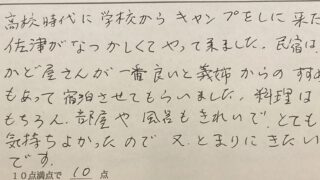 高校時代に学校からキャンプをしに来た
佐津がなつかしくてやって来ました。民宿は、
かど屋さんが一番良いと義姉からのすす
もあって宿泊させてもらいました。料理は
もちろん、部屋や風呂もきれいで、とても
気持ちよかったので又、とまりにきたい
です。
10点満点で 10 点